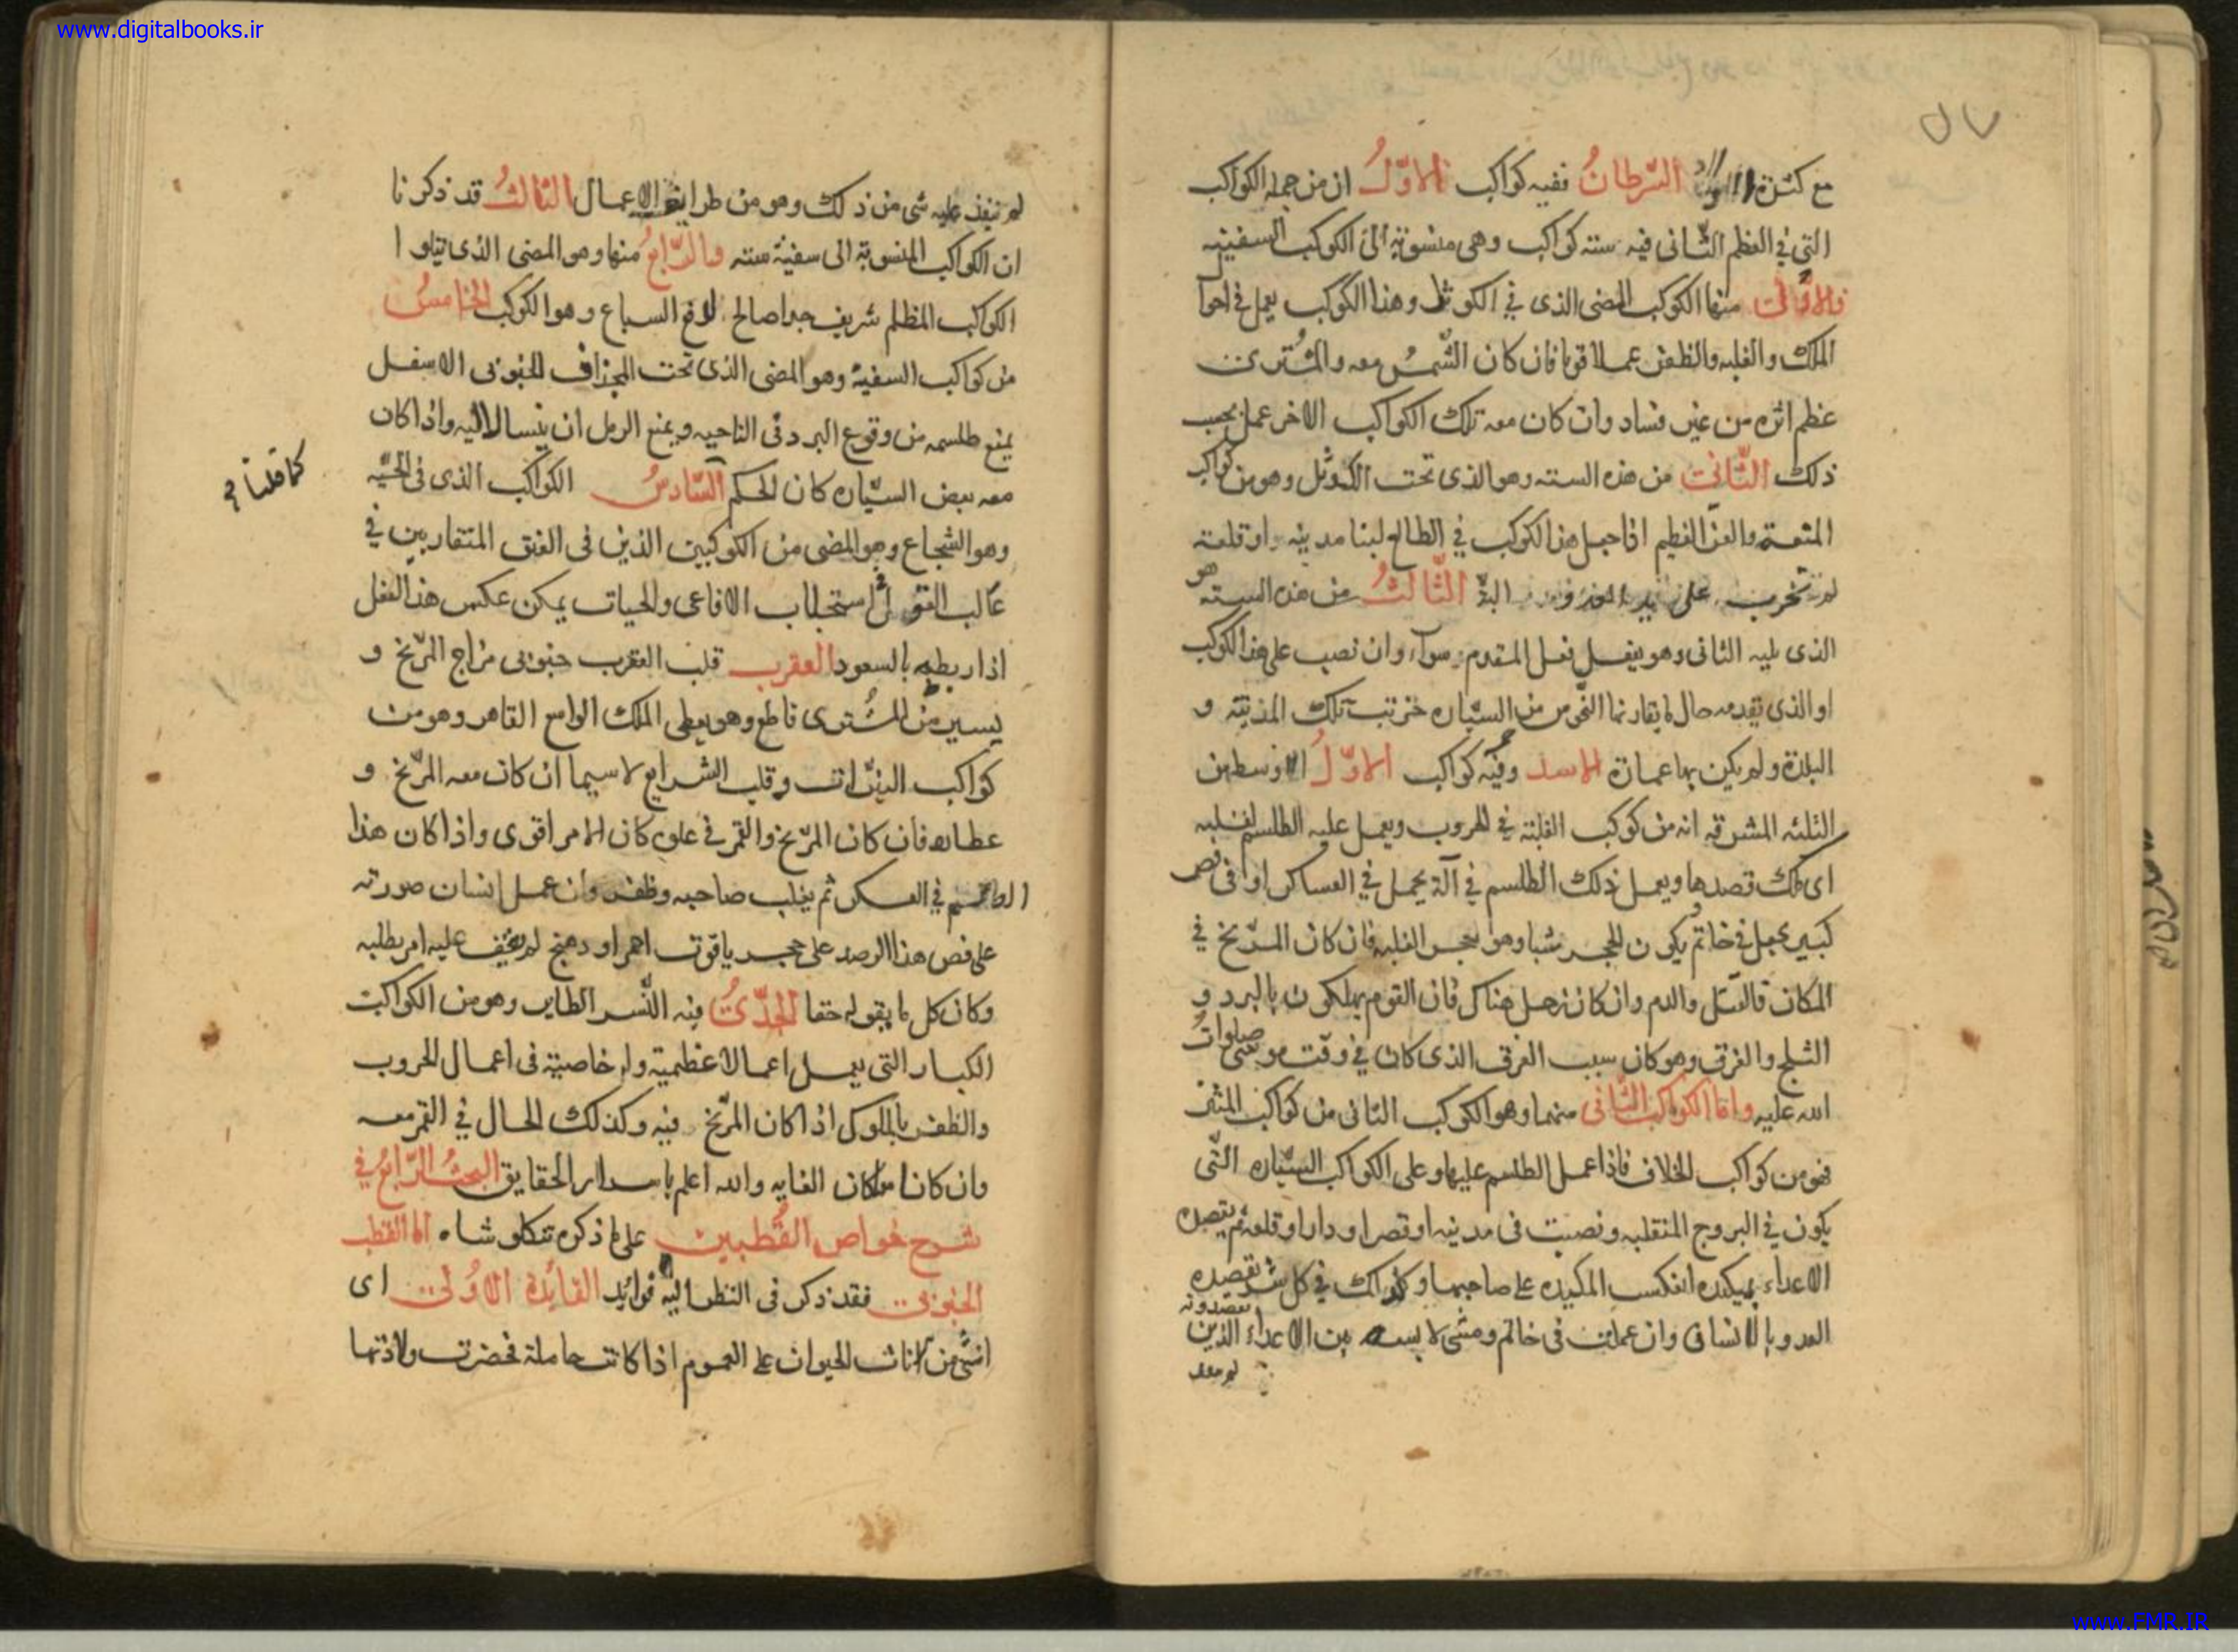 www.digitalbooks.ir
مع كثرة السرطان ففيه كواكب الاول ان من جملة الكواكب
التى في العظم الثانى فيه ستة كواكب وهى منسوبة الى الكوكب السفينه
فالاول منها الكوكب المضى الذى في الكوثل وهذا الكوكب يعمل في
الملك والغلبه والظفر عملا قويا فان كان الشمس معه والمشترى
عظم اثره من غير فساد وان كان معه تلك الكواكب الاخر عمل بحسب
ذلك الثانى من هذه الستة وهو الذى تحت الكوثل وهو من كواكب
المنعة والعز العظيم اذا جعل هذا الكوكب في الطالع لبنا مدينه او قلعة
لم تخرب على البتة الثالث من هذه الستة هو
الذى يليه الثانى وهو يفعل فعل المقدم سوآء وان نصب على هذا الكوكب
او الذى تقدمه حال ما يقارنها النحوس من السياره خربت تلك المدينة و
البلدة ولم يكن بها عمارة الاسد وفيه كواكب الاول الاوسط من
الثلثه المشرقه انه من كوكب الغلبة في الحروب ويعمل عليه الطلسم لغلبه
اى ملك قصدها ويعمل ذلك الطلسم في آلة يحمل في العساكر او فى فص
كبير يجعل في خاتم يكون الحجر شبا وهو حجر الغلبه فان كان المريخ في
المكان فالقتل والدم وان كان زحل هناك فان القوم يهلكون بالبرد و
الثلج والغرق وهو كان سبب الغرق الذى كان في وقت موسى صلوات
الله عليه واما الكواكب الثانى منهما وهو الكوكب الثانى من كواكب
فهو من كواكب الخلاف فاذا عمل الطلسم عليها وعلى الكواكب السياره التى
يكون في البروج المنقلبه ونصبت فى مدينه او قصر او دار او قلعة ثم يقصده
الاعداء بمكيده انعكست المكيده على صاحبها وكذلك في كل شر يقصده
العدو بالانسان وان عملت فى خاتم ومشى لابسه بين الاعداء الذين يقصدونه
لم
لم ينفذ عليه شى من ذلك وهو من طرايف الاعمال الثالث قد ذكرنا
ان الكواكب المنسوبة الى سفينة ستة والرابع منها وهو المضى الذى يتلو
الكواكب المظلم شريف جدا صالح لدفع السباع وهو الكوكب الخامس
من كواكب السفينة وهو المضى الذى تحت المجذاف الجنوبى الاسفل
يمنع طلسمه من وقوع البرد فى الناحيه ويمنع الرمل ان ينسال اليه واذا كان
معه بعض السياره كان الحكم السادس الكواكب الذى فى الحيه
كما قلنا
وهو الشجاع وهو المضى من الكوكبين الذين فى العنق المتقاربين في
غالب القو استجلاب الافاعى والحيات يمكن عكس هذا الفعل
اذا ربطه بالسعود العقرب قلب العقرب جنوبى مزاج المريخ و
يسير من المشترى قاطع وهو يعطى الملك الواسع القاهر وهو من
كواكب النيرات وقلب الشرايع لاسيما ان كان معه المريخ و
عطارد فان كان المريخ والقمر في علوه كان الامر اقوى واذا كان هذا
في العسكر ثم يغلب صاحبه وظفر وان عمل انسان صورته
على فص هذا الرصد على حجر ياقوت احمر او دهنج لم يخف عليه امر يطلبه
وكان كل ما يقوله حقا الجدى فيه النسر الطاير وهو من الكواكب
الكبار التى يعمل اعمالا عظيمة وله خاصية فى اعمال الحروب
والظفر بالملوك اذا كان المريخ فيه وكذلك الحال في القمر معه
وان كانا معا كان الغايه والله اعلم باسرار الحقايق البحث الرابع في
شرح خواص القطبين على ما ذكره تنكلوشاه اما القطب
الجنوبى فقد ذكر فى النظر اليه فوايد الفائدة الاولى اى
انثى من اناث الحيوان على العموم اذا كانت حاملة فحضرت ولادتها
www.FMR.IR